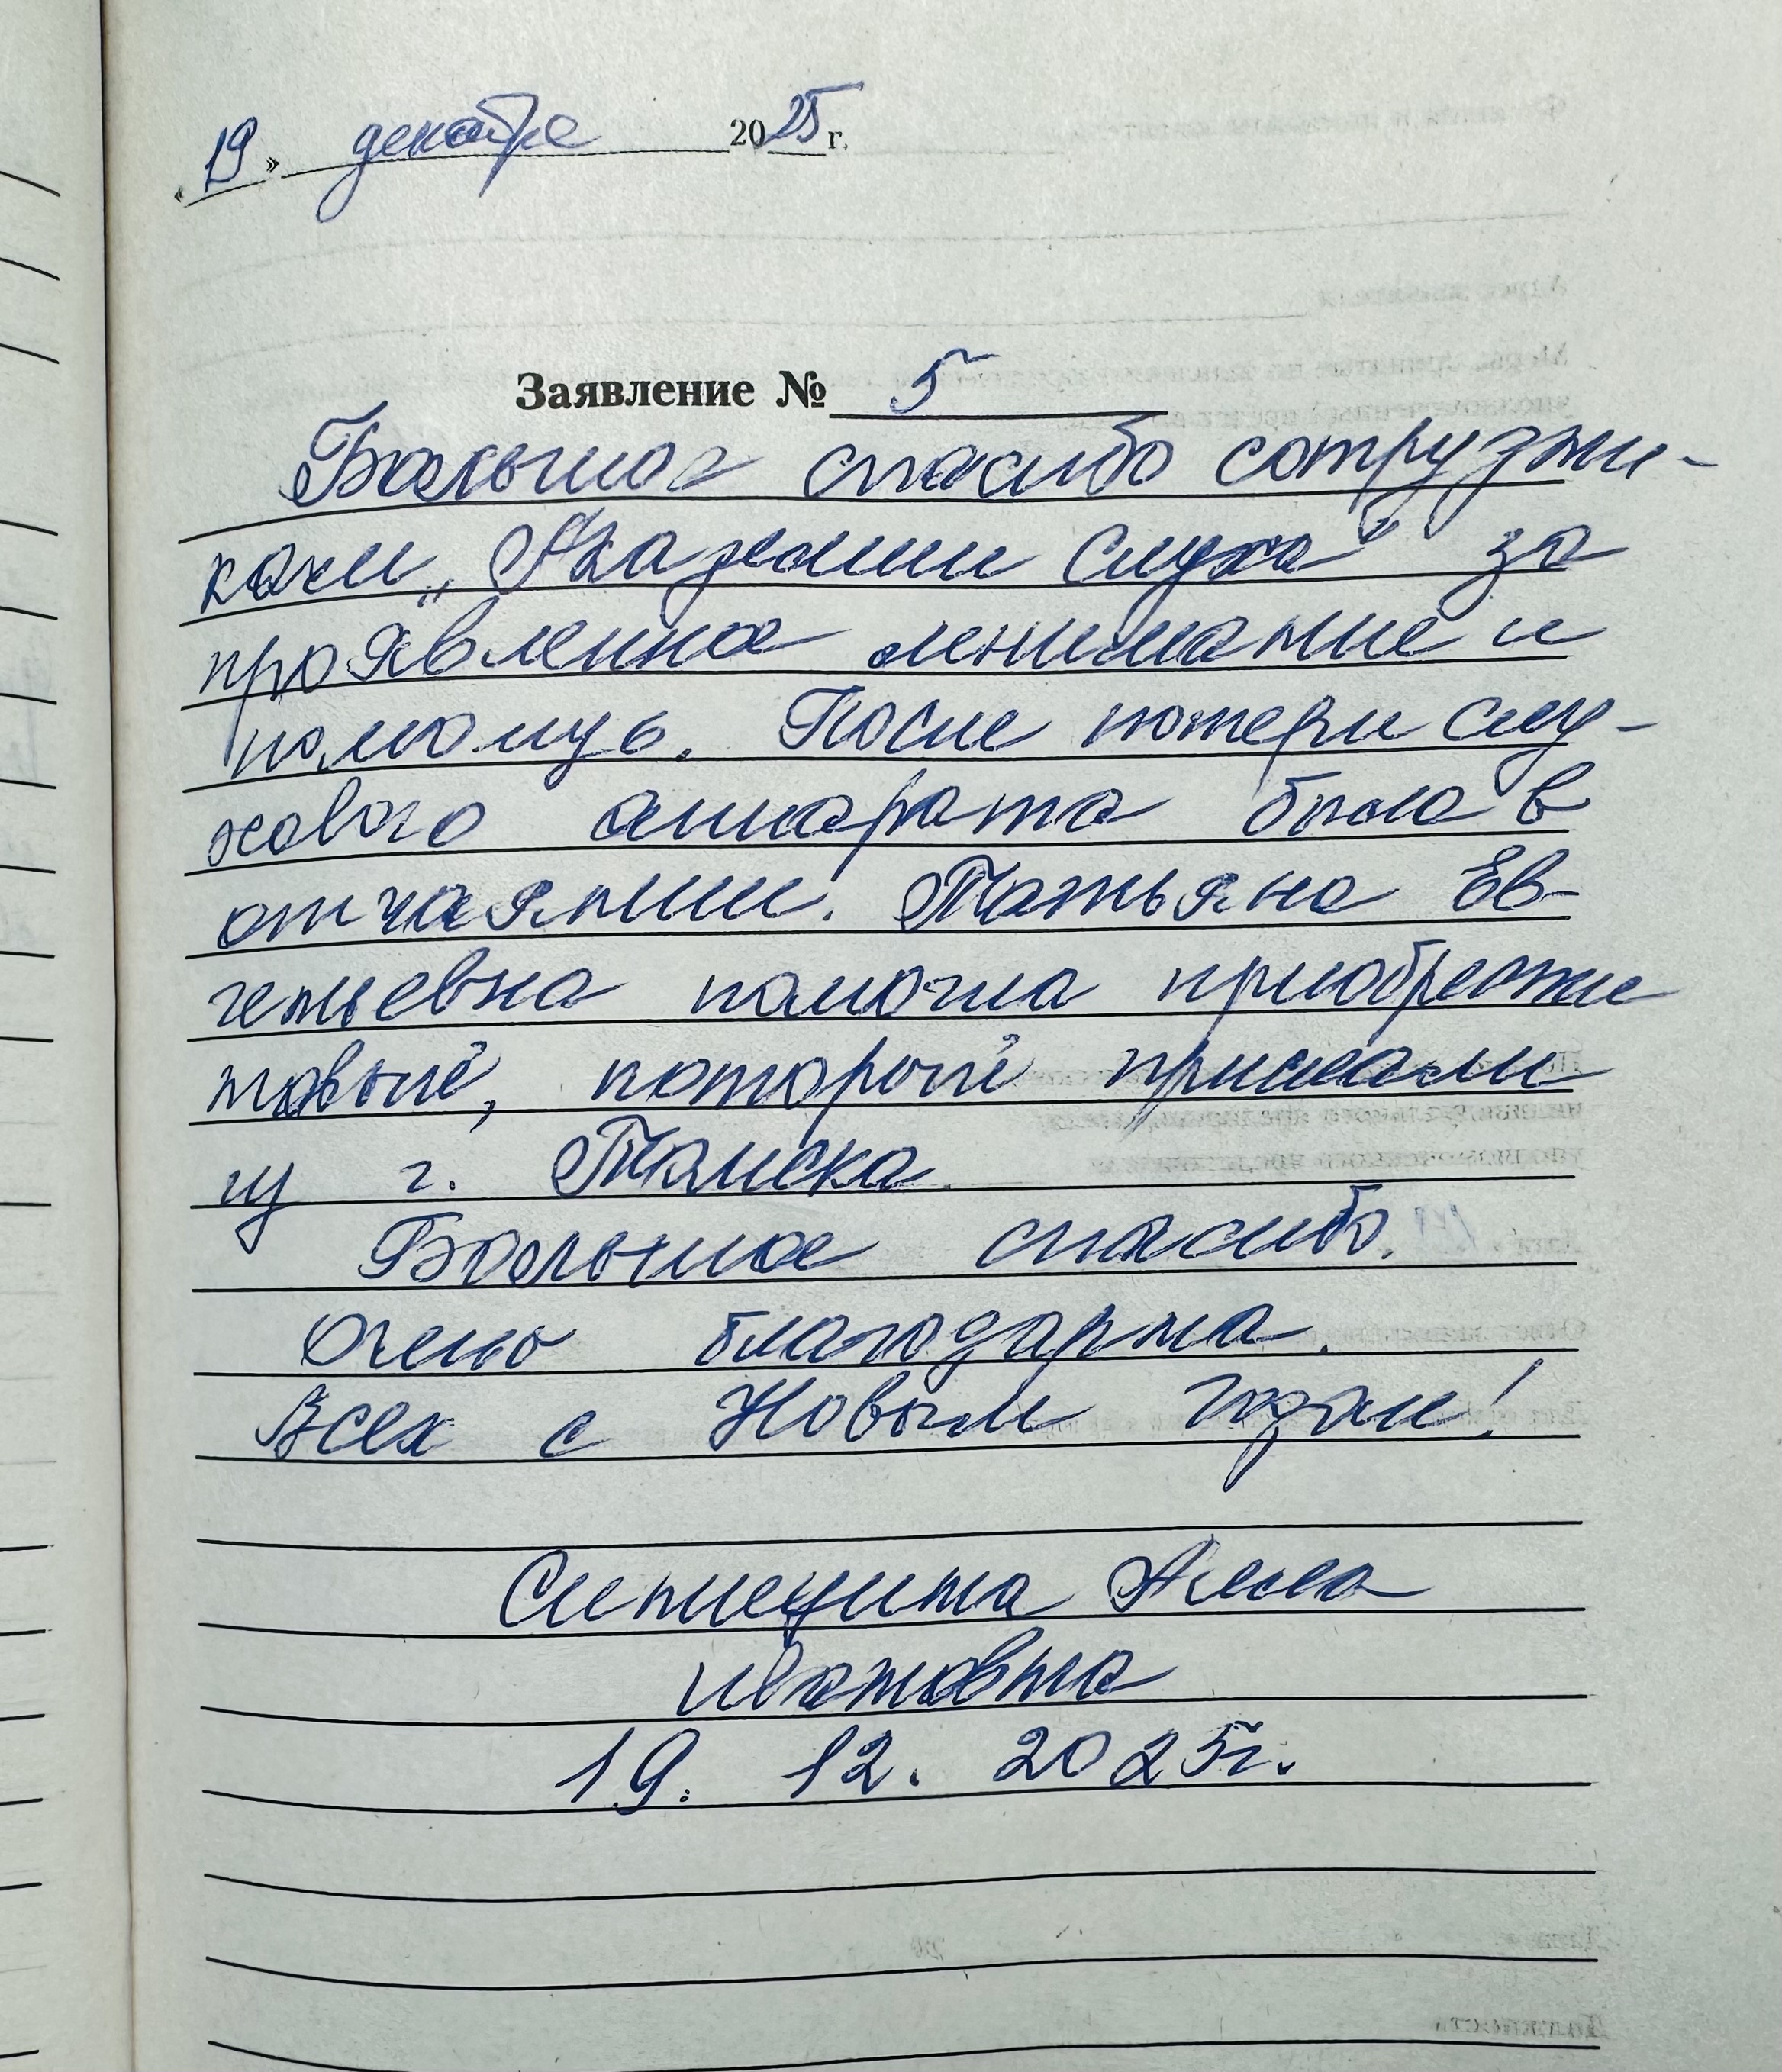 « 19 » декабря 2025 г.
Заявление № 5
Большое спасибо сотрудни-
ками „Академии Слуха" за
проявленное внимание и
помощь. После потери слу-
хового аппарата была в
отчаянии. Татьяна Ев-
геньевна помогла приобрести
новый, который прислали
из г. Томска.
Большое спасибо.
Очень благодарна.
Всех с Новым годом!
Синицина Анна
Ивановна
19. 12. 2025г.